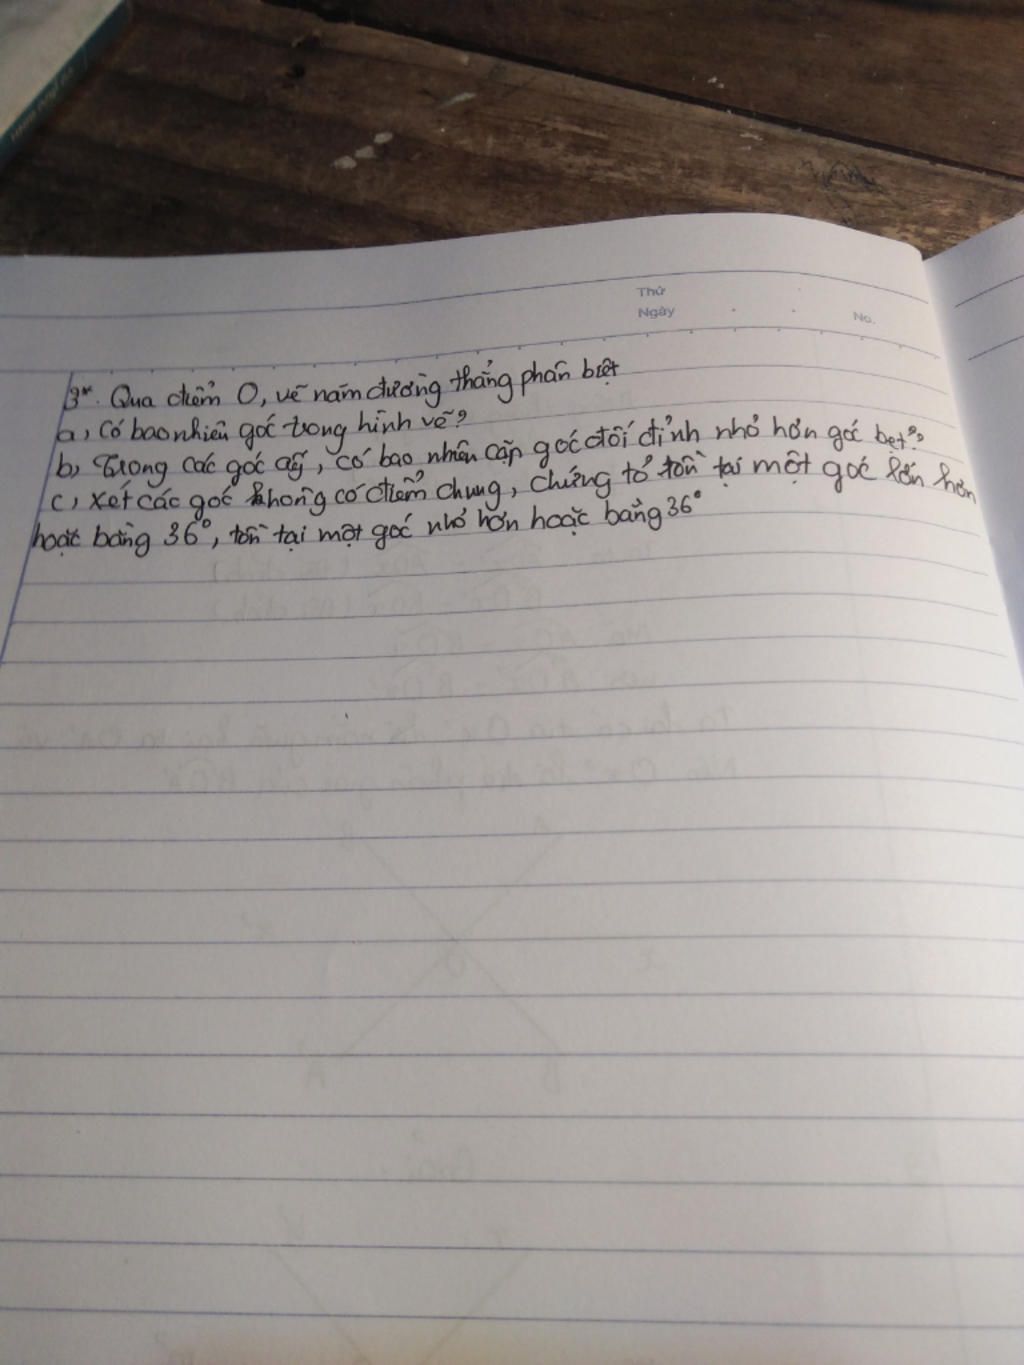 Thứ
Ngày
No.
3*. Qua điểm O, vẽ năm đường thẳng phân biệt
a, Có bao nhiêu góc trong hình vẽ?
b, Trong các góc ấy, có bao nhiêu cặp góc đối đỉnh nhỏ hơn góc bẹt?
c, Xét các góc không có điểm chung, chứng tỏ tồn tại một góc lớn hơn
hoặc bằng 36°, tồn tại một góc nhỏ hơn hoặc bằng 36°